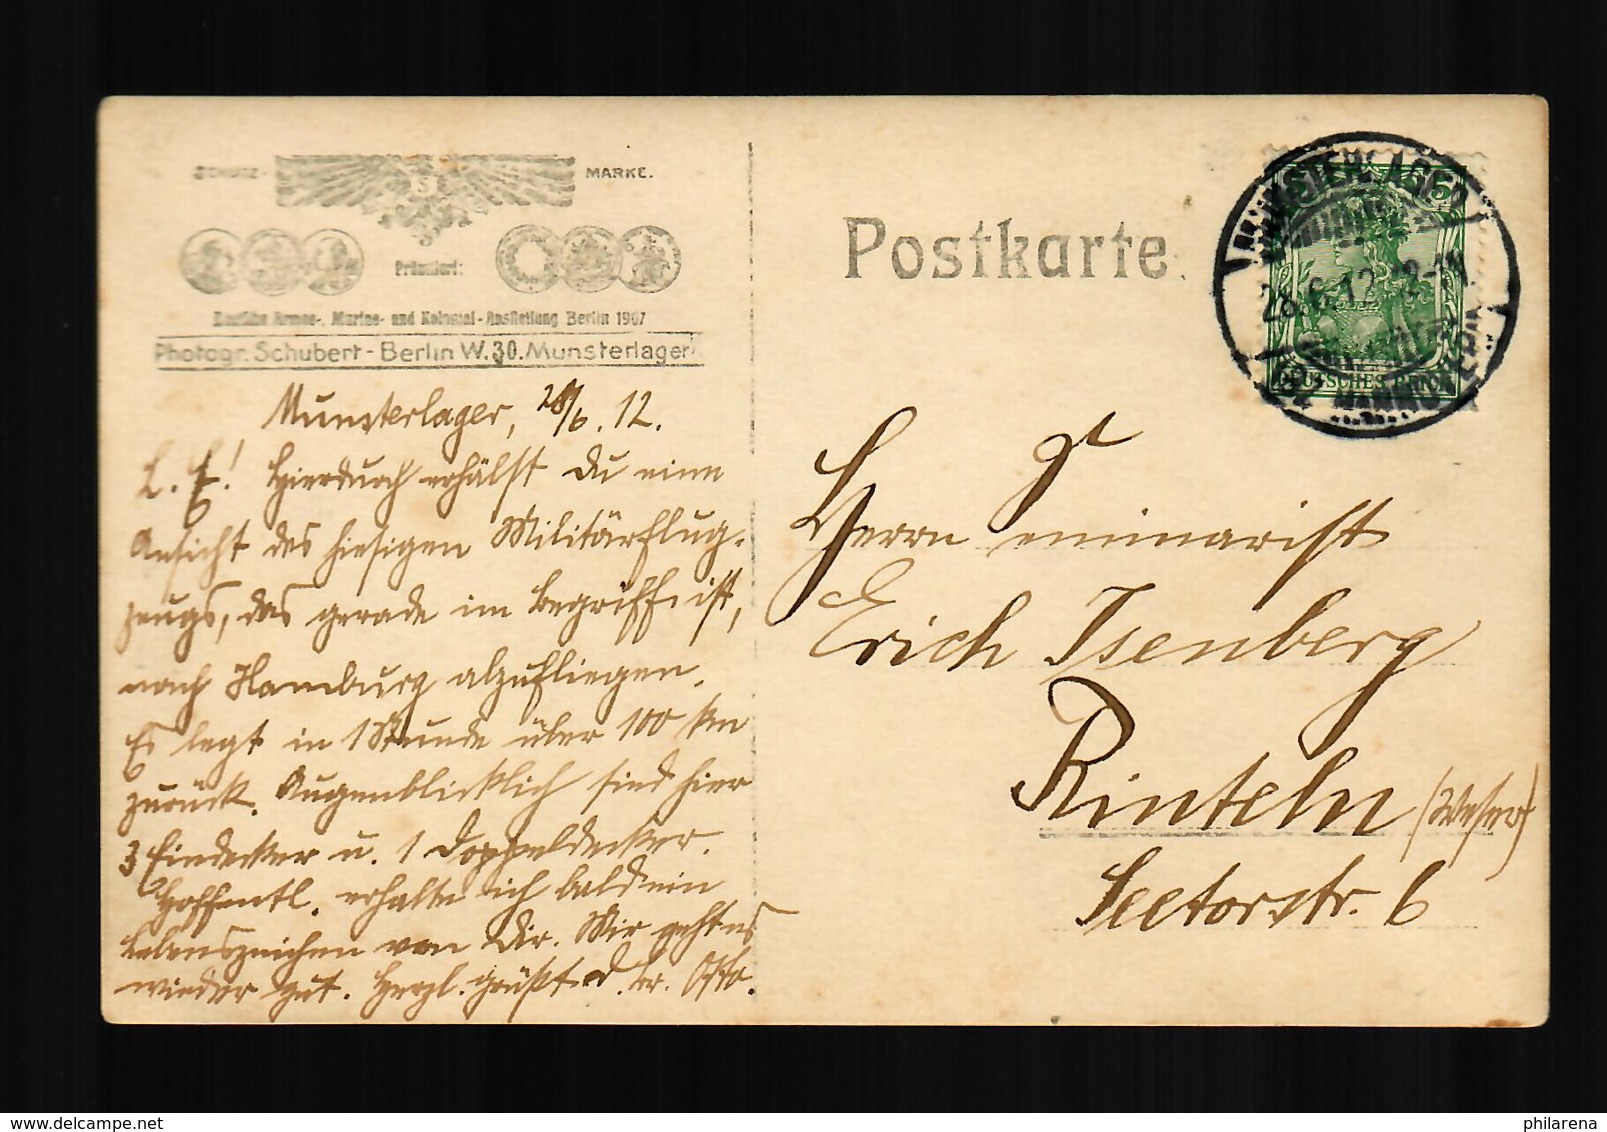 SCHUTZ- MARKE.
S
Prämiiert:
Deutsche Armee-, Marine- und Kolonial-Ausstellung Berlin 1907
Photogr. Schubert - Berlin W. 30. Munsterlager
Munsterlager, 28/6. 12.
L. E! Hierdurch erhälst Du eine
Ansicht des hiesigen Militärflug-
zeugs, das gerade im Begriff ist,
nach Hamburg abzufliegen.
Es legt in 1 Stunde über 100 km
zurück. Augenblicklich sind hier
3 Eindecker u. 1 Doppeldecker.
Hoffentl. erhalte ich bald ein
Lebenszeichen von Dir. Mir geht es
wieder gut. Herzl. grüßt d. Br. Otto.
Postkarte
MUNSTERLAGER
28.6.12
HANNOVER
DEUTSCHES REICH
5
Herrn Seminarist
Erich Isenberg
Rinteln (Weser)
Seetorstr. 6
delcampe.net
philarena